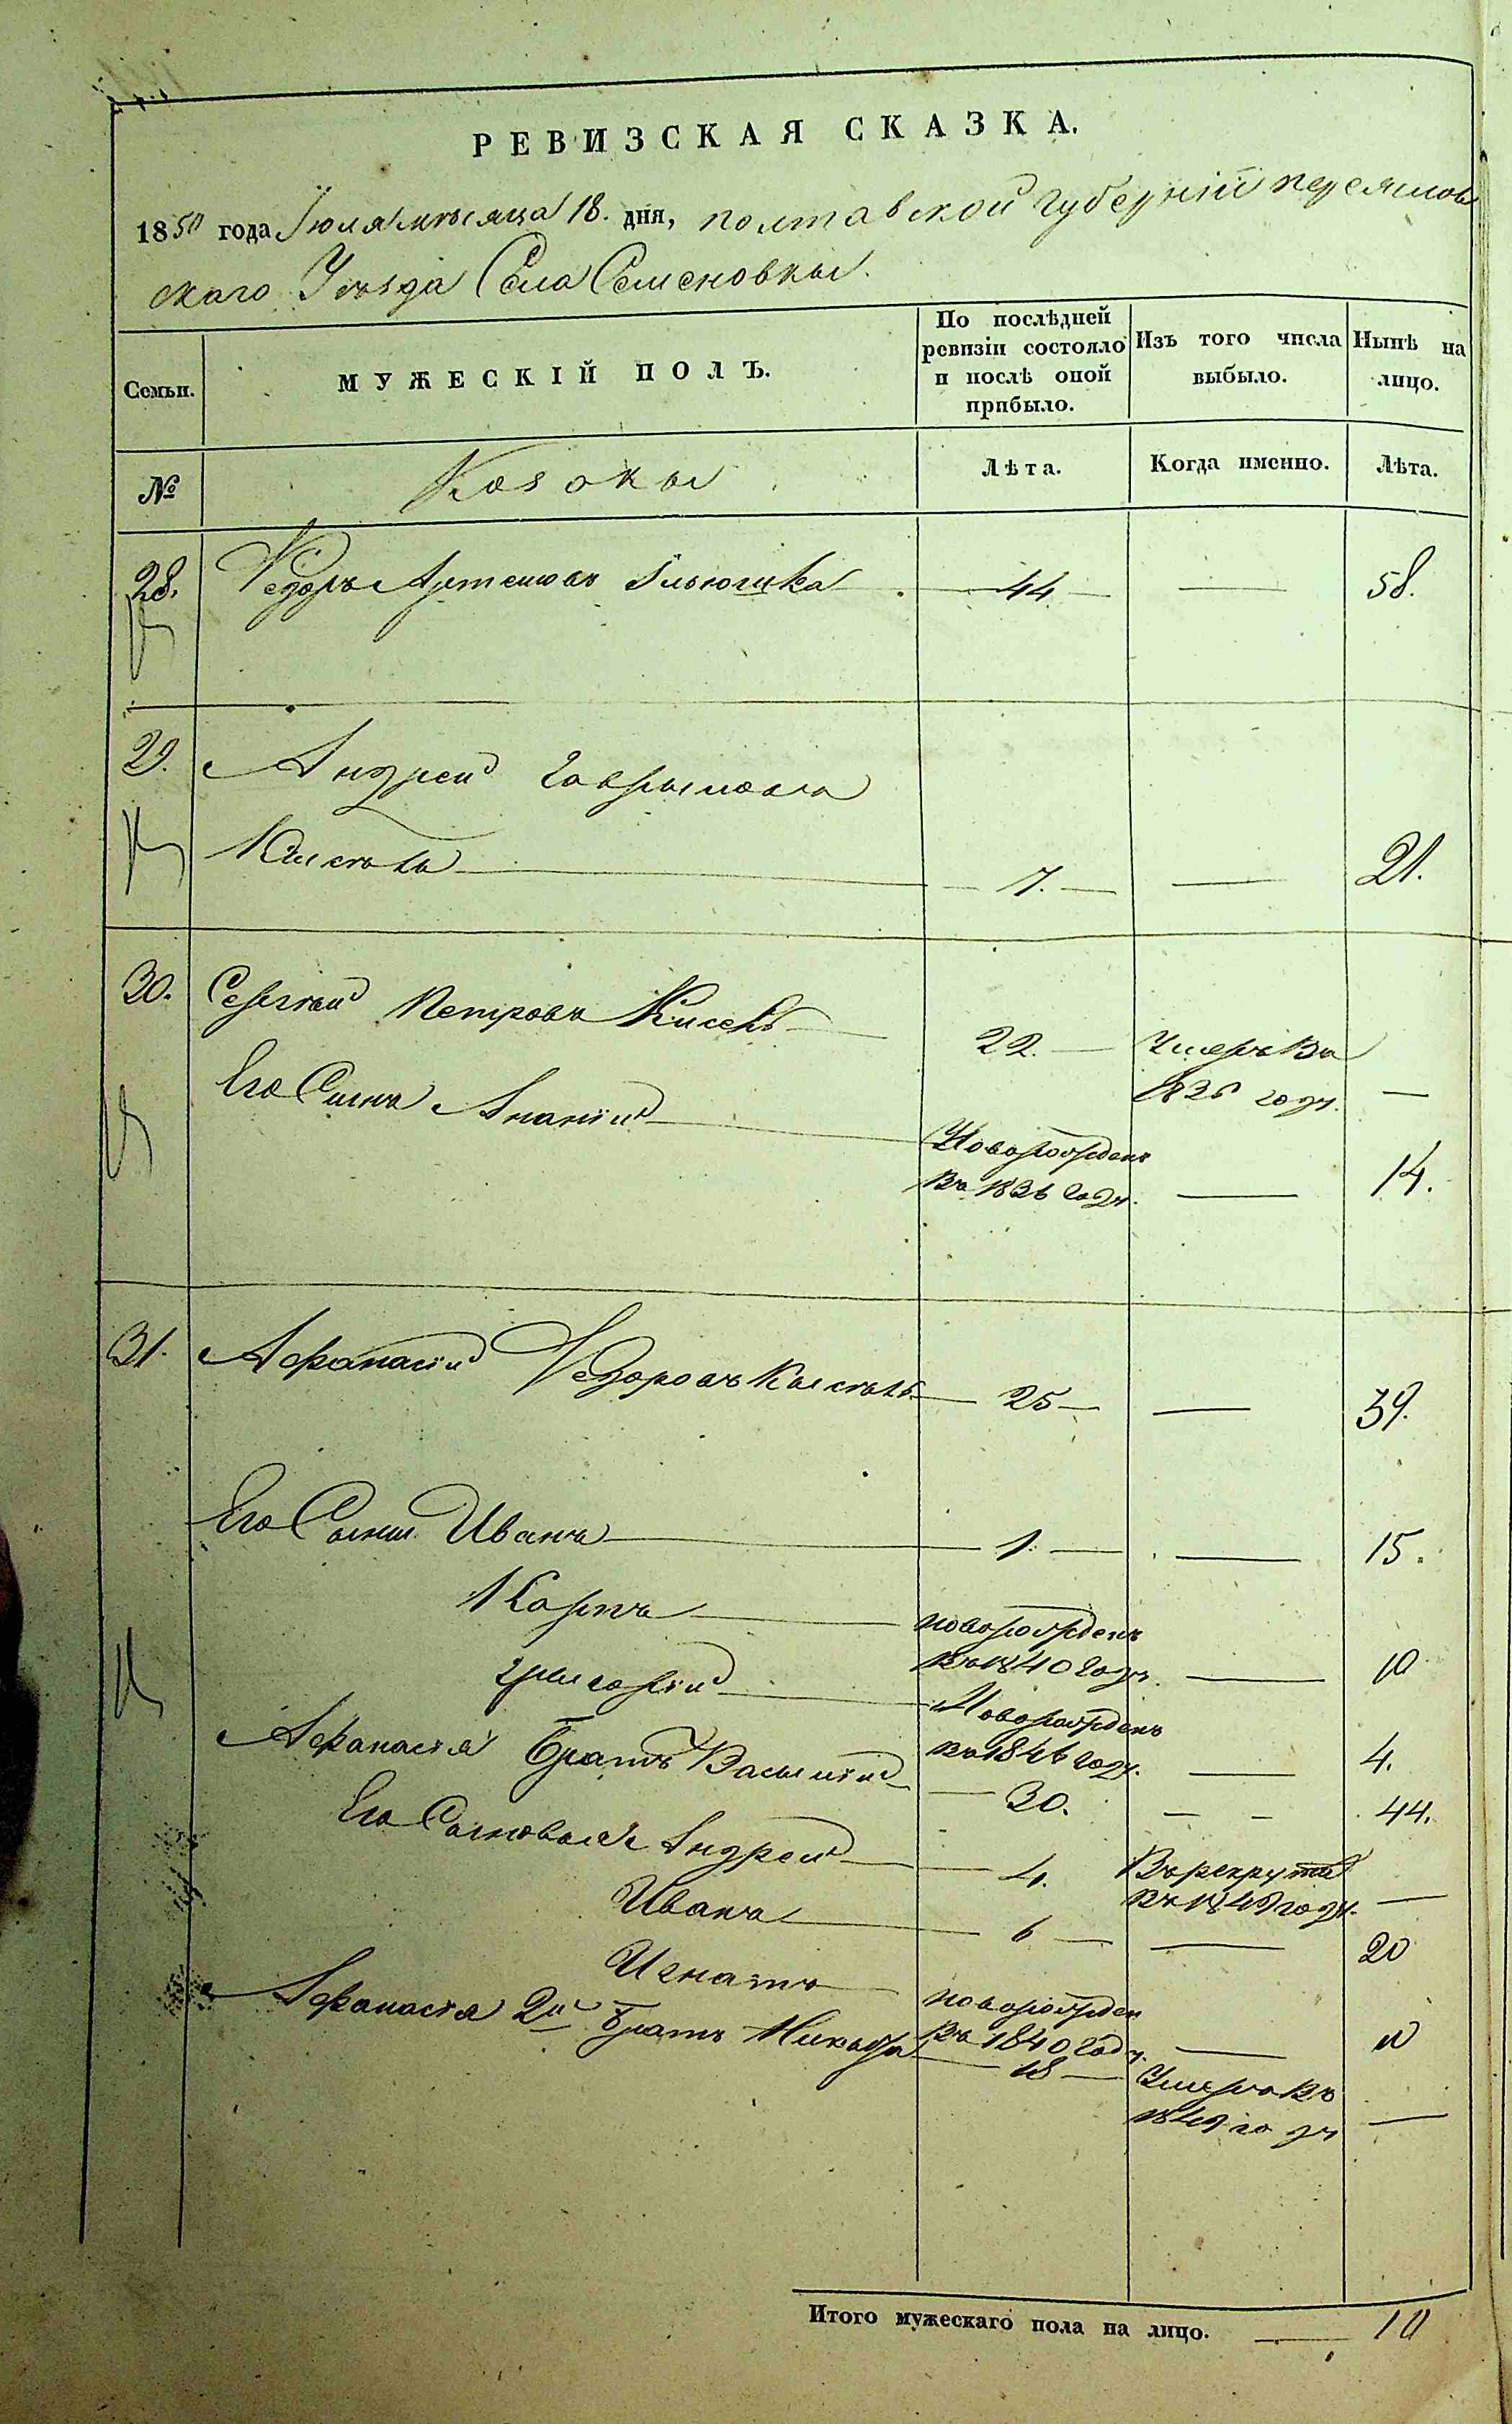 РЕВИЗСКАЯ СКАЗКА.
1850 года Іюля мѣсяца 18. дня, полтавской губерніи переяслов
скаго Уѣзда Села Семеновки.
Семьи.
МУЖЕСКІЙ ПОЛЪ.
По послѣдней ревизіи состояло и послѣ оной прибыло.
Изъ того числа выбыло.
Нынѣ на лицо.
№ Козаки Лѣта. Когда именно. Лѣта.
28. Федоръ Артемовъ — 44 — — 58.
29. Андрей Гаврыловъ
Кысѣль — 7. — — 21.
30. Сергѣй Петровъ Кисель 22. — Умеръ въ
1836 году. —
Его Сынъ Ананій — Новорожденъ
въ 1836 году. — 14.
31. Афанасій Федоровъ Кысѣль — 25 — — 39.
Его Сыны Иванъ — 1. — — 15.
Карпъ — новорожденъ
въ 1840 году. — 10
григорій — Новорожденъ
въ 1846 году. — 4.
Афанасія братъ Василій — 30. — — 44.
Его Сыновья Андрей — 4. Въ рекруты
въ 1849 году. —
Иванъ — 6 — — 20
Игнатъ — новорожден
въ 1840 году. — 10
Афанасія 2й братъ — 18 — Умеръ въ
1849 году —
Итого мужескаго пола на лицо. — 10